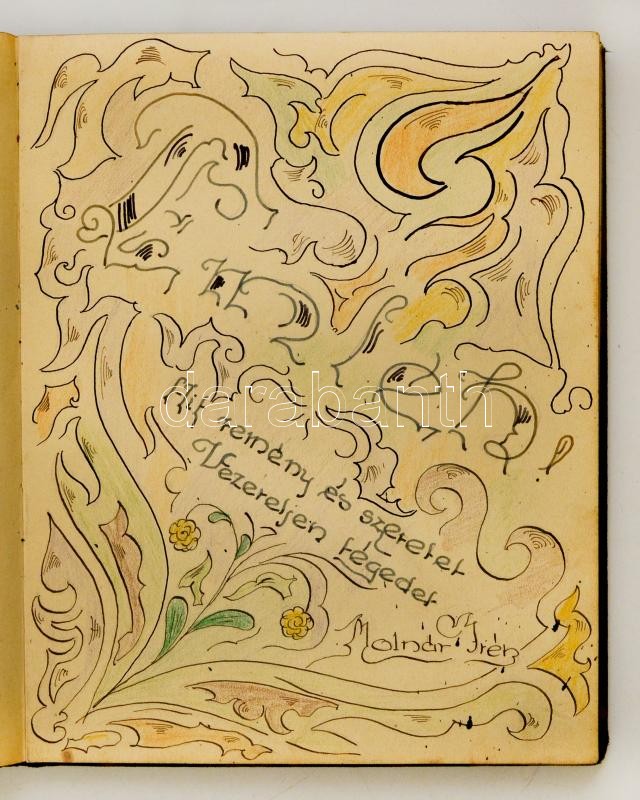 Emlék!
Hit remény és szeretet
Vezéreljen tégedet
Molnár Irén
darabanth